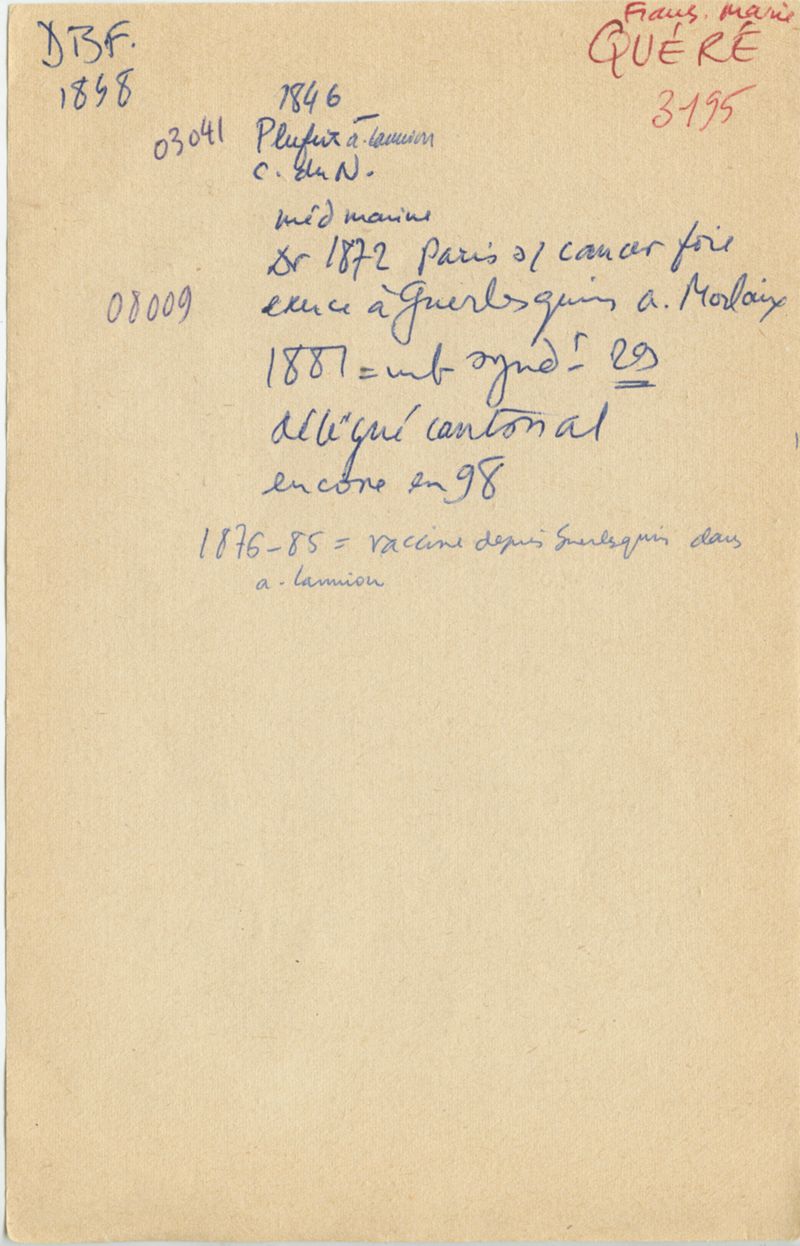 Franç. Marie
QUÉRÉ
3195
DBF.
1898
1846
03041 Plufur a. Lannion
C. du N.
méd marine
Dr 1872 Paris s/ cancer foie
08009 exerce à Guerlesquin a. Morlaix
1881 = mb synd- 29
délégué cantonal
encore en 98
1876-85 = vaccine depuis Guerlesquin dans
a. Lannion